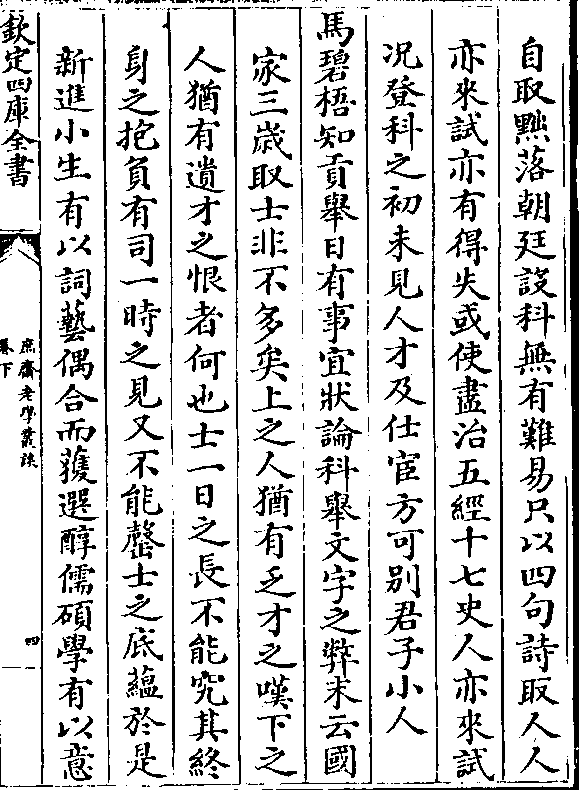 自取黜落朝廷設科無有難易只以四句詩取人人
亦來試亦有得失或使盡治五經十七史人亦來試
况登科之初未見人才及仕宦方可别君子小人
馬碧梧知貢舉日有事宜狀論科舉文字之弊末云國
家三歲取士非不多矣上之人猶有乏才之嘆下之
人猶有遺才之恨者何也士一日之長不能究其終
身之抱負有司一時之見又不能罄士之底蘊於是
新進小生有以詞藝偶合而獲選醇儒碩學有以意
欽定四庫全書
庶齋老學叢談
卷下
四